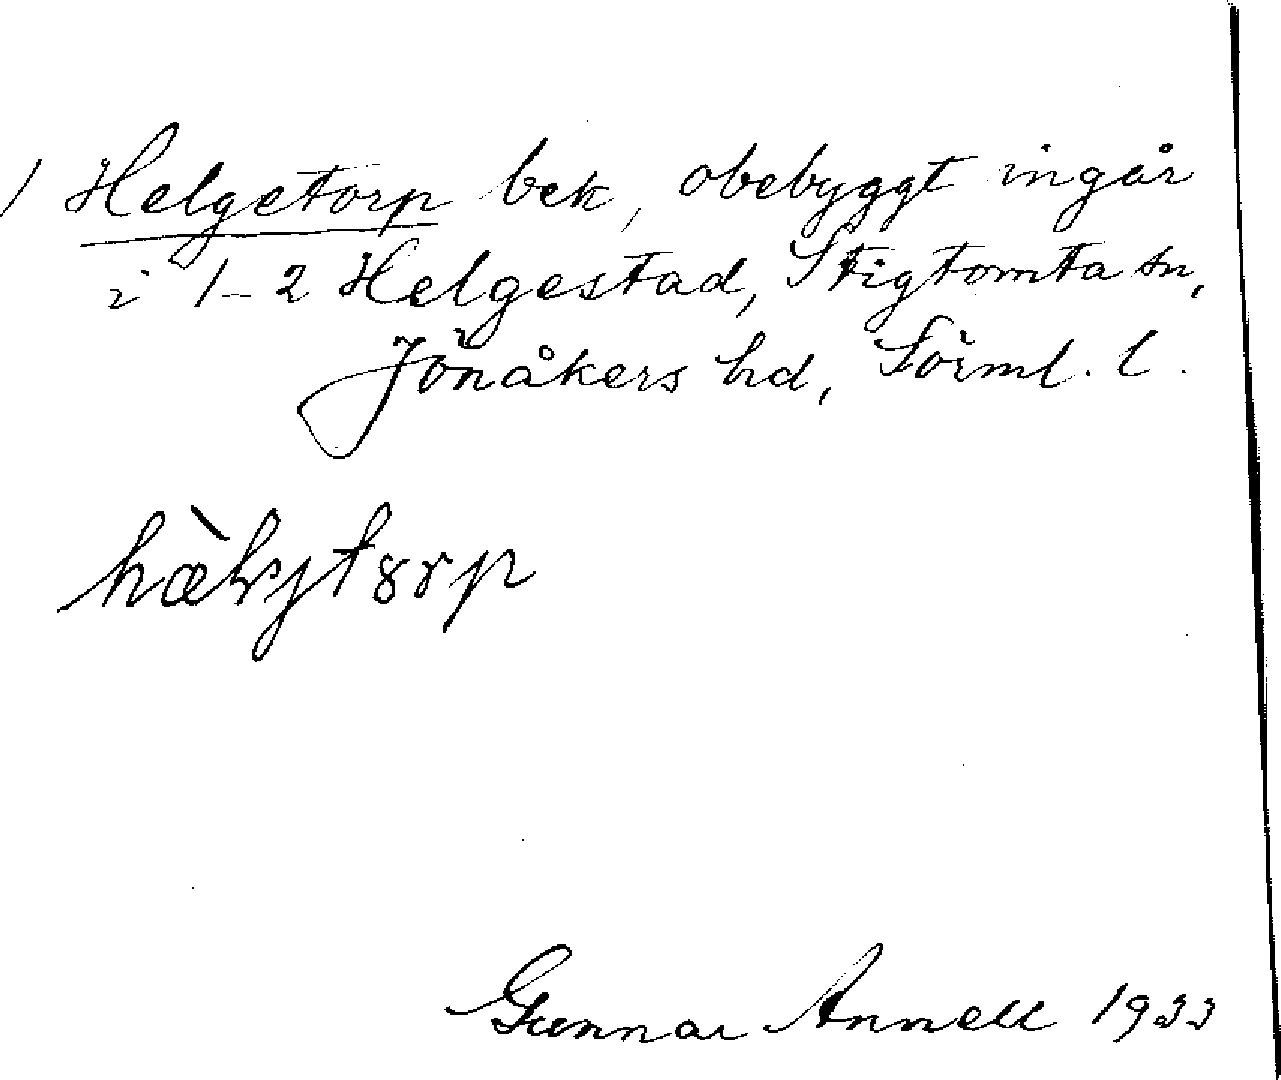 / Helgetorp bek, obebyggt ingår
i 1-2 Helgestad, Stigtomta sn,
Jönåkers hd, Sörml. l.
Gunnar Annell 1933